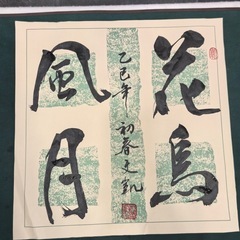 花鳥
風月
乙巳年初春文凯